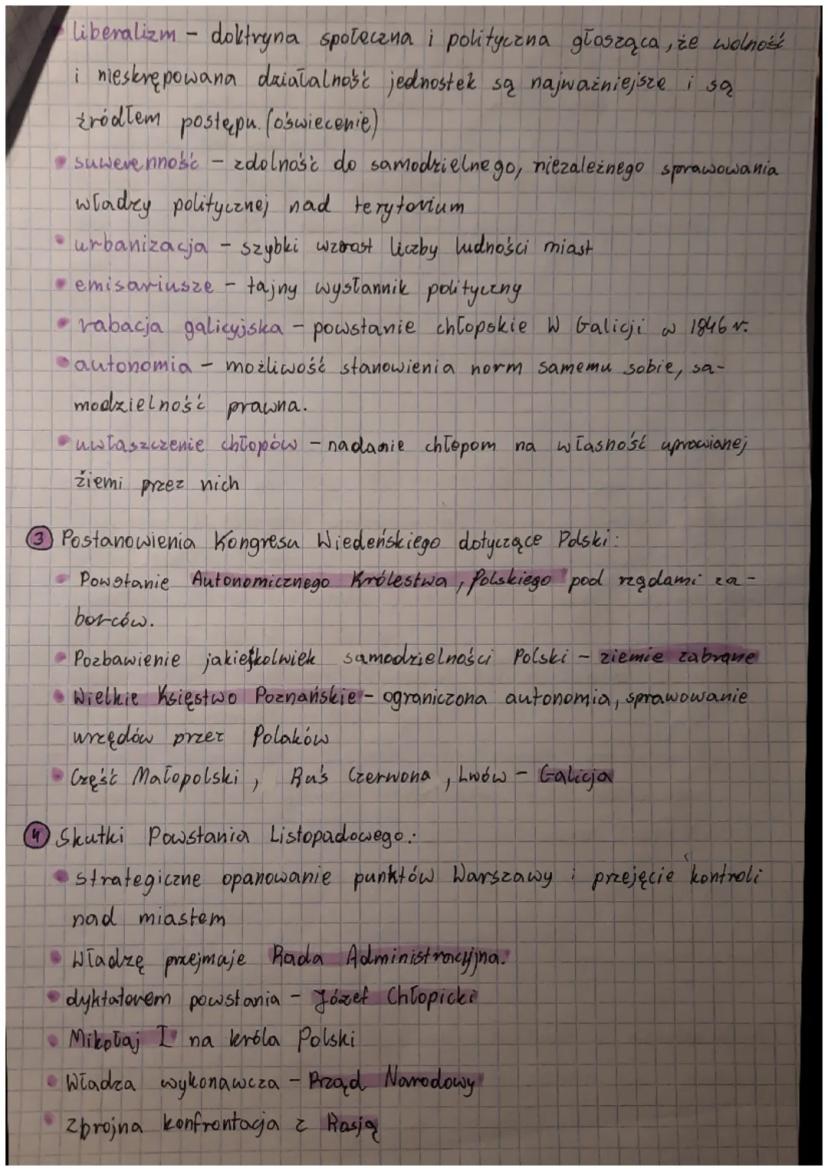 • liberalizm – doktryna społeczna i polityczna głosząca, że wolność
i nieskrępowana działalność jednostek są najważniejsze i są
źródłem postępu. (oświecenie)
• suwerenność – zdolność do samodzielnego, niezależnego sprawowania
władzy politycznej nad terytorium
• urbanizacja – szybki wzrost liczby ludności miast
• emisariusze – tajny wysłannik polityczny
• rabacja galicyjska – powstanie chłopskie w Galicji w 1846 r.
• autonomia – możliwość stanowienia norm samemu sobie, sa-
modzielność prawna.
• uwłaszczenie chłopów – nadanie chłopom na własność uprawianej
ziemi przez nich
③ Postanowienia Kongresu Wiedeńskiego dotyczące Polski:
• Powstanie Autonomicznego Królestwa, Polskiego pod rządami za-
borców.
• Pozbawienie jakiejkolwiek samodzielności Polski – ziemie zabrane
• Wielkie Księstwo Poznańskie – ograniczona autonomia, sprawowanie
urzędów przez Polaków
• Część Małopolski, Ruś Czerwona, Lwów – Galicja
④ Skutki Powstania Listopadowego:
• strategiczne opanowanie punktów Warszawy i przejęcie kontroli
nad miastem
• Władzę przejmaje Rada Administracyjna.
• dyktatorem powstania – Józef Chłopicki
• Mikołaj I na króla Polski
• Władza wykonawcza – Rząd Narodowy
• zbrojna konfrontacja z Rosją